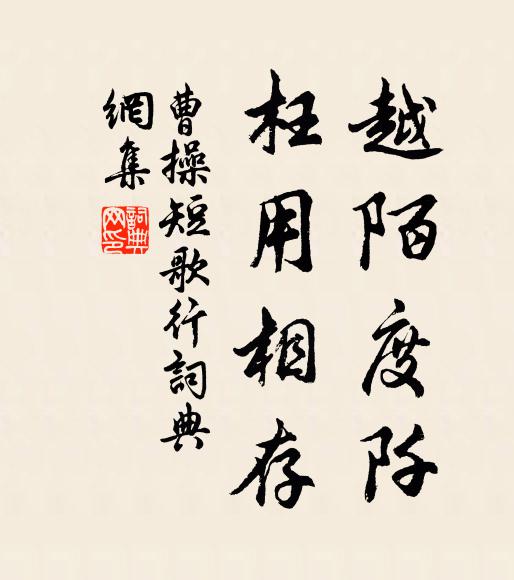 越陌度阡
枉用相存
曹操短歌行詞典
網集
詞典
网印